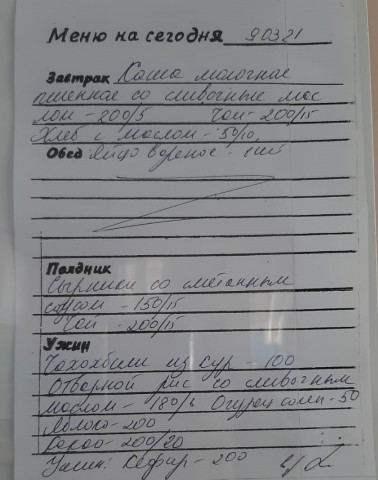 Меню на сегодня 90321
Завтрак Каша молочная
пшенная со сливочным мас
лом - 200/5 Чай - 200/15
Хлеб с маслом - 50/10,
Обед Яйцо вареное - 1шт
Полдник
Сырники со сметанным
соусом - 150/15
Чай - 200/15
Ужин
Чахохбили из кур - 100
Отварной рис со сливочным
маслом - 180/6 Огурец солен - 50
Яблоко - 200
Какао - 200/20
Ужин: Кефир - 200